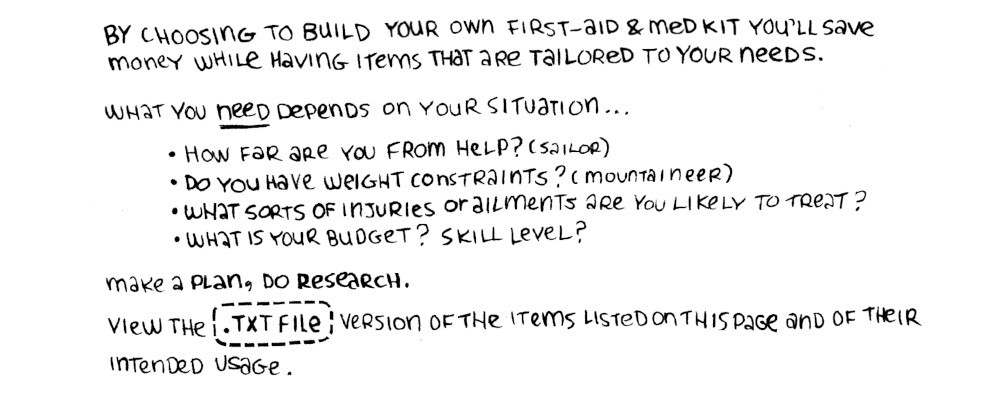 BY CHOOSING TO BUILD YOUR OWN FIRST-AID & MED KIT YOU'LL SAVE
MONEY WHILE HAVING ITEMS THAT ARE TAILORED TO YOUR NEEDS.
WHAT YOU NEED DEPENDS ON YOUR SITUATION...
• HOW FAR ARE YOU FROM HELP? (SAILOR)
• DO YOU HAVE WEIGHT CONSTRAINTS? (MOUNTAINEER)
• WHAT SORTS OF INJURIES OR AILMENTS ARE YOU LIKELY TO TREAT?
• WHAT IS YOUR BUDGET? SKILL LEVEL?
MAKE A PLAN, DO RESEARCH.
VIEW THE .TXT FILE VERSION OF THE ITEMS LISTED ON THIS PAGE AND OF THEIR
INTENDED USAGE.